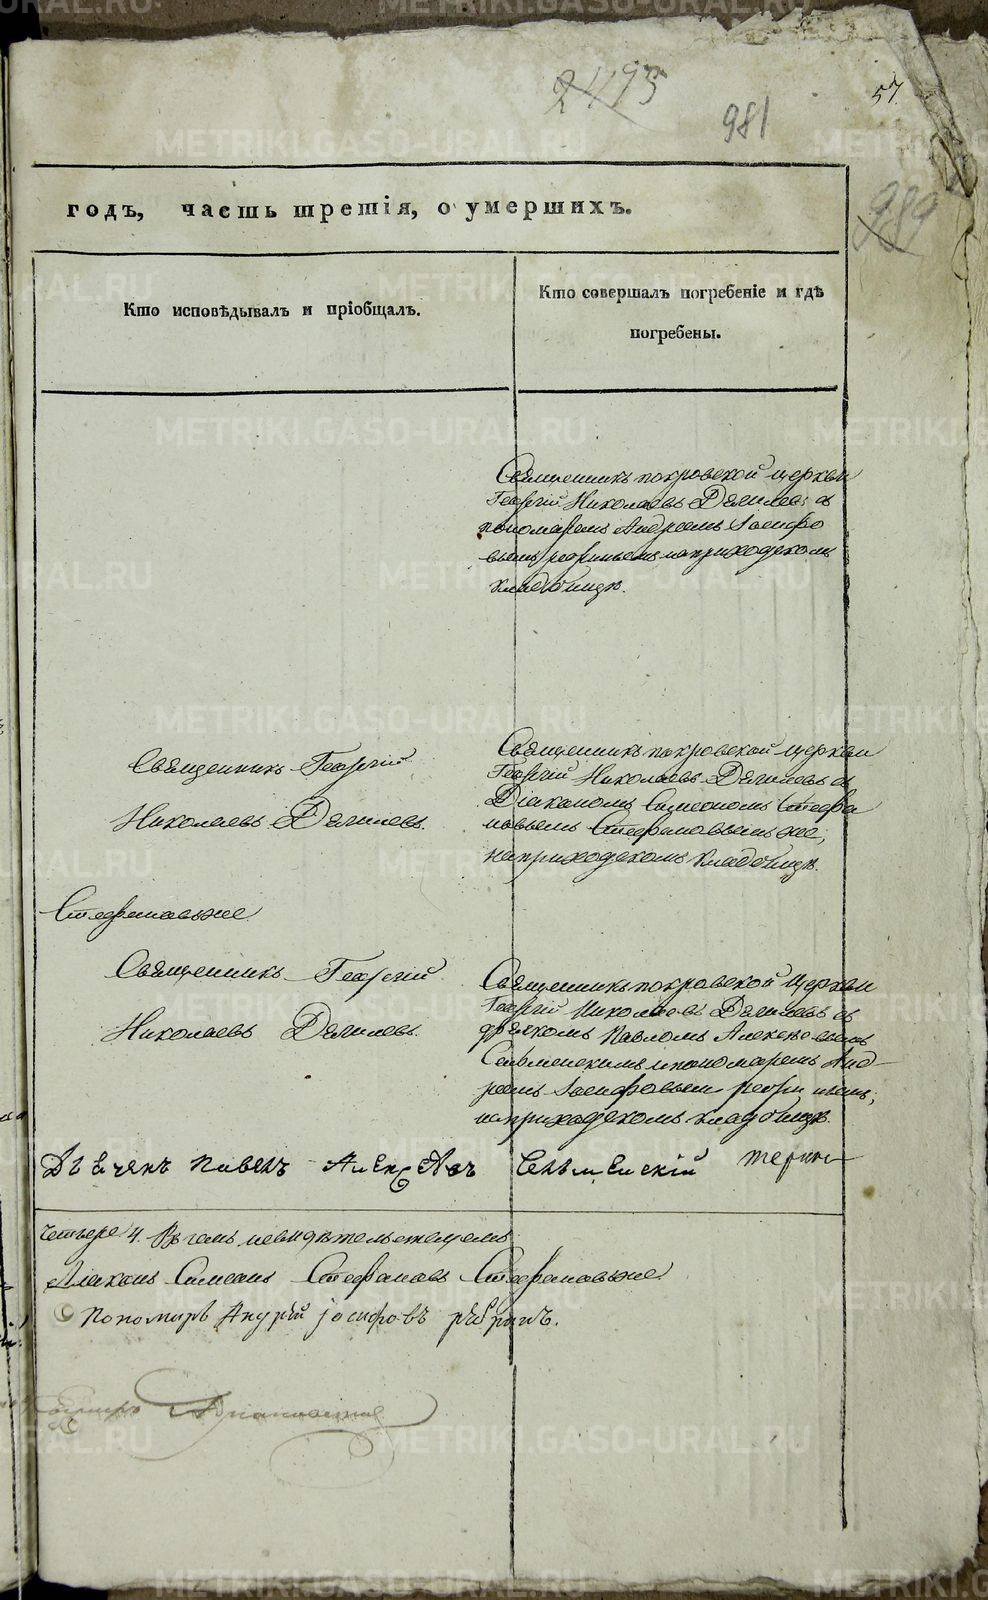 2493
981
57.
989
годъ, часть третія, о умершихъ.
Кто исповѣдывалъ и пріобщалъ.
Кто совершалъ погребеніе и гдѣ
погребены.
Священникъ покровской церкви
Георгій Николаевъ съ
пономаремъ Андреемъ Іосифо
вымъ на приходскомъ
кладбищѣ.
Священникъ Георгій
Николаевъ
Священникъ покровской церкви
Георгій Николаевъ съ
Діакономъ Симеономъ Стефа
новымъ Стефановымъ же,
на приходскомъ кладбищѣ.
Стефановъ же
Священникъ Георгій
Николаевъ
Священникъ покровской церкви
Георгій Николаевъ съ
дьячкомъ Павломъ Алексѣевымъ
и пономаремъ Анд
реемъ Іосифовымъ
на приходскомъ кладбищѣ.
Дьячекъ Павелъ Алексѣевъ
четыре 4. Въ чемъ и свидѣтельствуемъ
Діаконъ Симеонъ Стефановъ Стефановъ же
Пономарь Андрѣй іосифовъ
METRIKI.GASO-URAL.RU